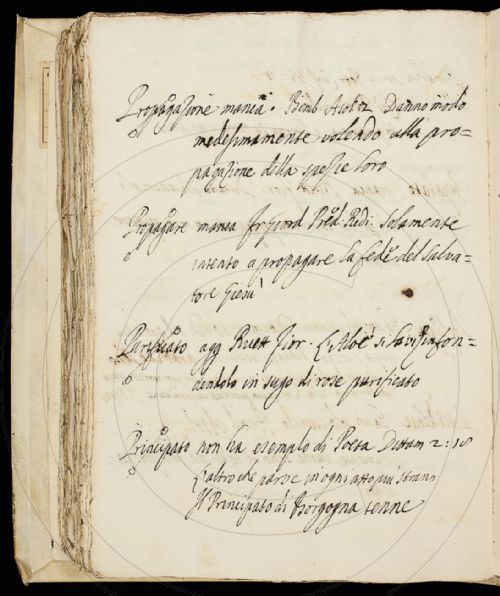 Propagazione manca. Bemb Asol 82 Danno modo
medesimamente volendo alla pro=
pagazione della spezie loro
Propagare manca Fr Giord Pred Redi. Solamente
intento a propagare la fede del Salva=
tore Giesù
Purificato agg Ricett Fior. L'Aloè si lavi infon=
dendolo in sugo di rose purificato
Principato non ha esempio di Poeta Dittam 2: 18
L'altro che parve in ogni atto più strano
Il Principato di Borgogna tenne